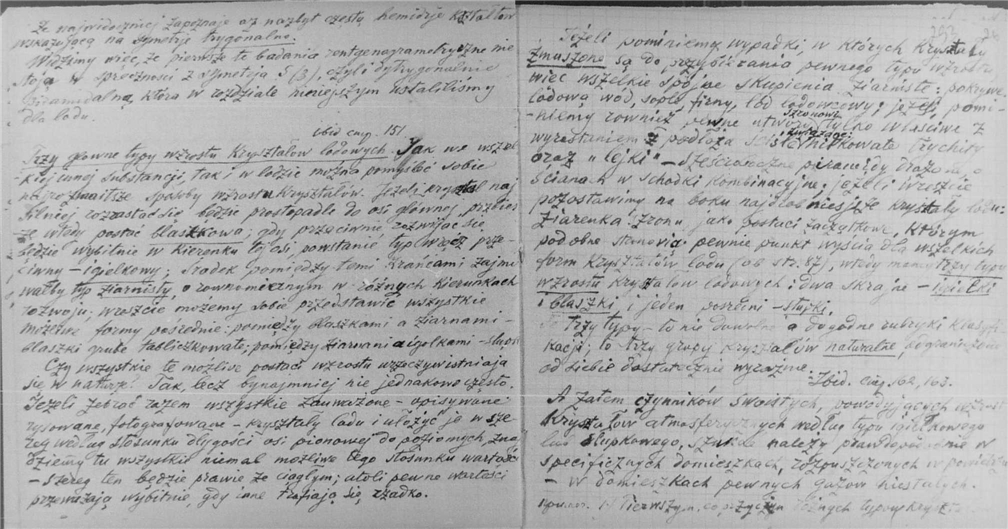 że najwidoczniej zapoznaje aż nazbyt częstą hemiedrję kształtów
wskazującą na symetrję trygonalną.
Widzimy więc, że pierwsze te badania rentgenometryczne nie
stoją w sprzeczności z symetrją
piramidalną, którą w rozdziale niniejszym ustaliliśmy
dla lodu.
ibid cap. 151
Trzy główne typy wzrostu kryształów lodowych. Jak we wszel-
kiej innej substancji, tak i w lodzie można pomyśleć sobie
najrozmaitsze sposoby wzrostu kryształów. Jeżeli kryształ naj
silniej rozrastać się będzie prostopadle do osi głównej, przybie
rze wtedy postać blaszkową; gdy przeciwnie, rozwijać się
będzie wybitnie w kierunku tej osi, powstanie typ wręcz prze-
ciwny - igiełkowy; środek pomiędzy temi krańcami zajmo
wałby typ ziarnisty, o równomiernym w różnych kierunkach
rozwoju; wreszcie możemy sobie przedstawić wszystkie
możliwe formy pośrednie: pomiędzy blaszkami a ziarnami -
blaszki grube tabliczkowate; pomiędzy ziarnami a igiełkami - słupki
Czy wszystkie te możliwe postaci wzrostu urzeczywistniają
się w naturze? Tak, lecz bynajmniej nie jednakowo często.
Jeżeli zebrać razem wszystkie zauważone - opisywane
rysowane, fotografowane - kryształy lodu i ułożyć je w sze
reg według stosunku długości osi pionowej do poziomych, znaj
dziemy tu wszystkie niemal możliwe tego stosunku wartości
- szereg ten będzie prawie że ciągłym; atoli pewne wartości
przeważają wybitnie, gdy inne trafiają się rzadko.
Jeżeli pominiemy wypadki, w których kryształy
zmuszone są do przybierania pewnego typu wzrostu
więc wszelkie spójne skupienia ziarniste: pokrywę
lodową wód, sople, firny, lód lodowcowy; jeżeli pomi-
niemy również pewne utwory, tylko właściwe
wyrastaniem z podłoża trychity
oraz "lejki" - sześcioranne piramidy drążone, o
ścianach w schodki kombinacyjne; jeżeli wreszcie
pozostawimy na boku najdrobniejsze kryształy lodu
ziarenka jako postaci zaczątkowe, którym
podobne stanowią pewnie punkt wyjścia dla wszelkich
form kryształów lodu (ob. str. 87), wtedy mamy trzy typy
wzrostu kryształów lodowych: dwa skrajne - igiełki
i blaszki i jeden pośredni - słupki.
Te trzy typy - to nie dowolne a dogodne rubryki klasyfi
kacji; to trzy grupy kryształów naturalne, odgraniczone
od siebie dostatecznie wyraźnie.
Ibid. cap. 162, 163.
A zatem czynników swoistych, powodujących wzrost
kryształów atmosferycznych według typu igiełkowego
lub słupkowego, szukać należy prawdopodobnie w
specyficznych domieszkach, rozpuszczonych w powietrzu
- w domieszkach pewnych gazów niestałych.